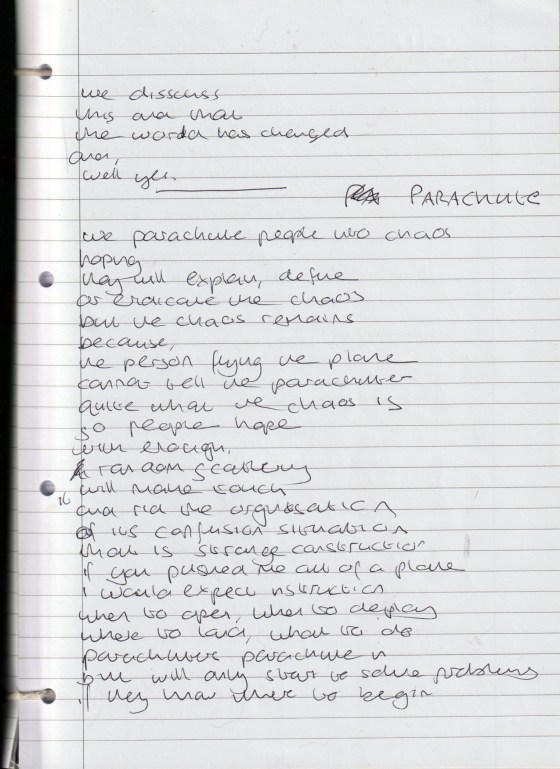 we disscuss
this and that
the world has changed
and,
well yes.
PARACHUTE
we parachute people into chaos
hoping
they will explain, define
or eradicate the chaos
but the chaos remains
because,
the person flying the plane
cannot tell the parachuter
quite what the chaos is
so people hope
with enough,
random scattering
will make touch
and rid the organisation
of its confusion situation
that is strange construction
if you pushed me out of a plane
I would expect instruction
when to open, when to deploy
where to land, what to do
parachuters parachute in
but will only start to solve problems
if they know where to begin